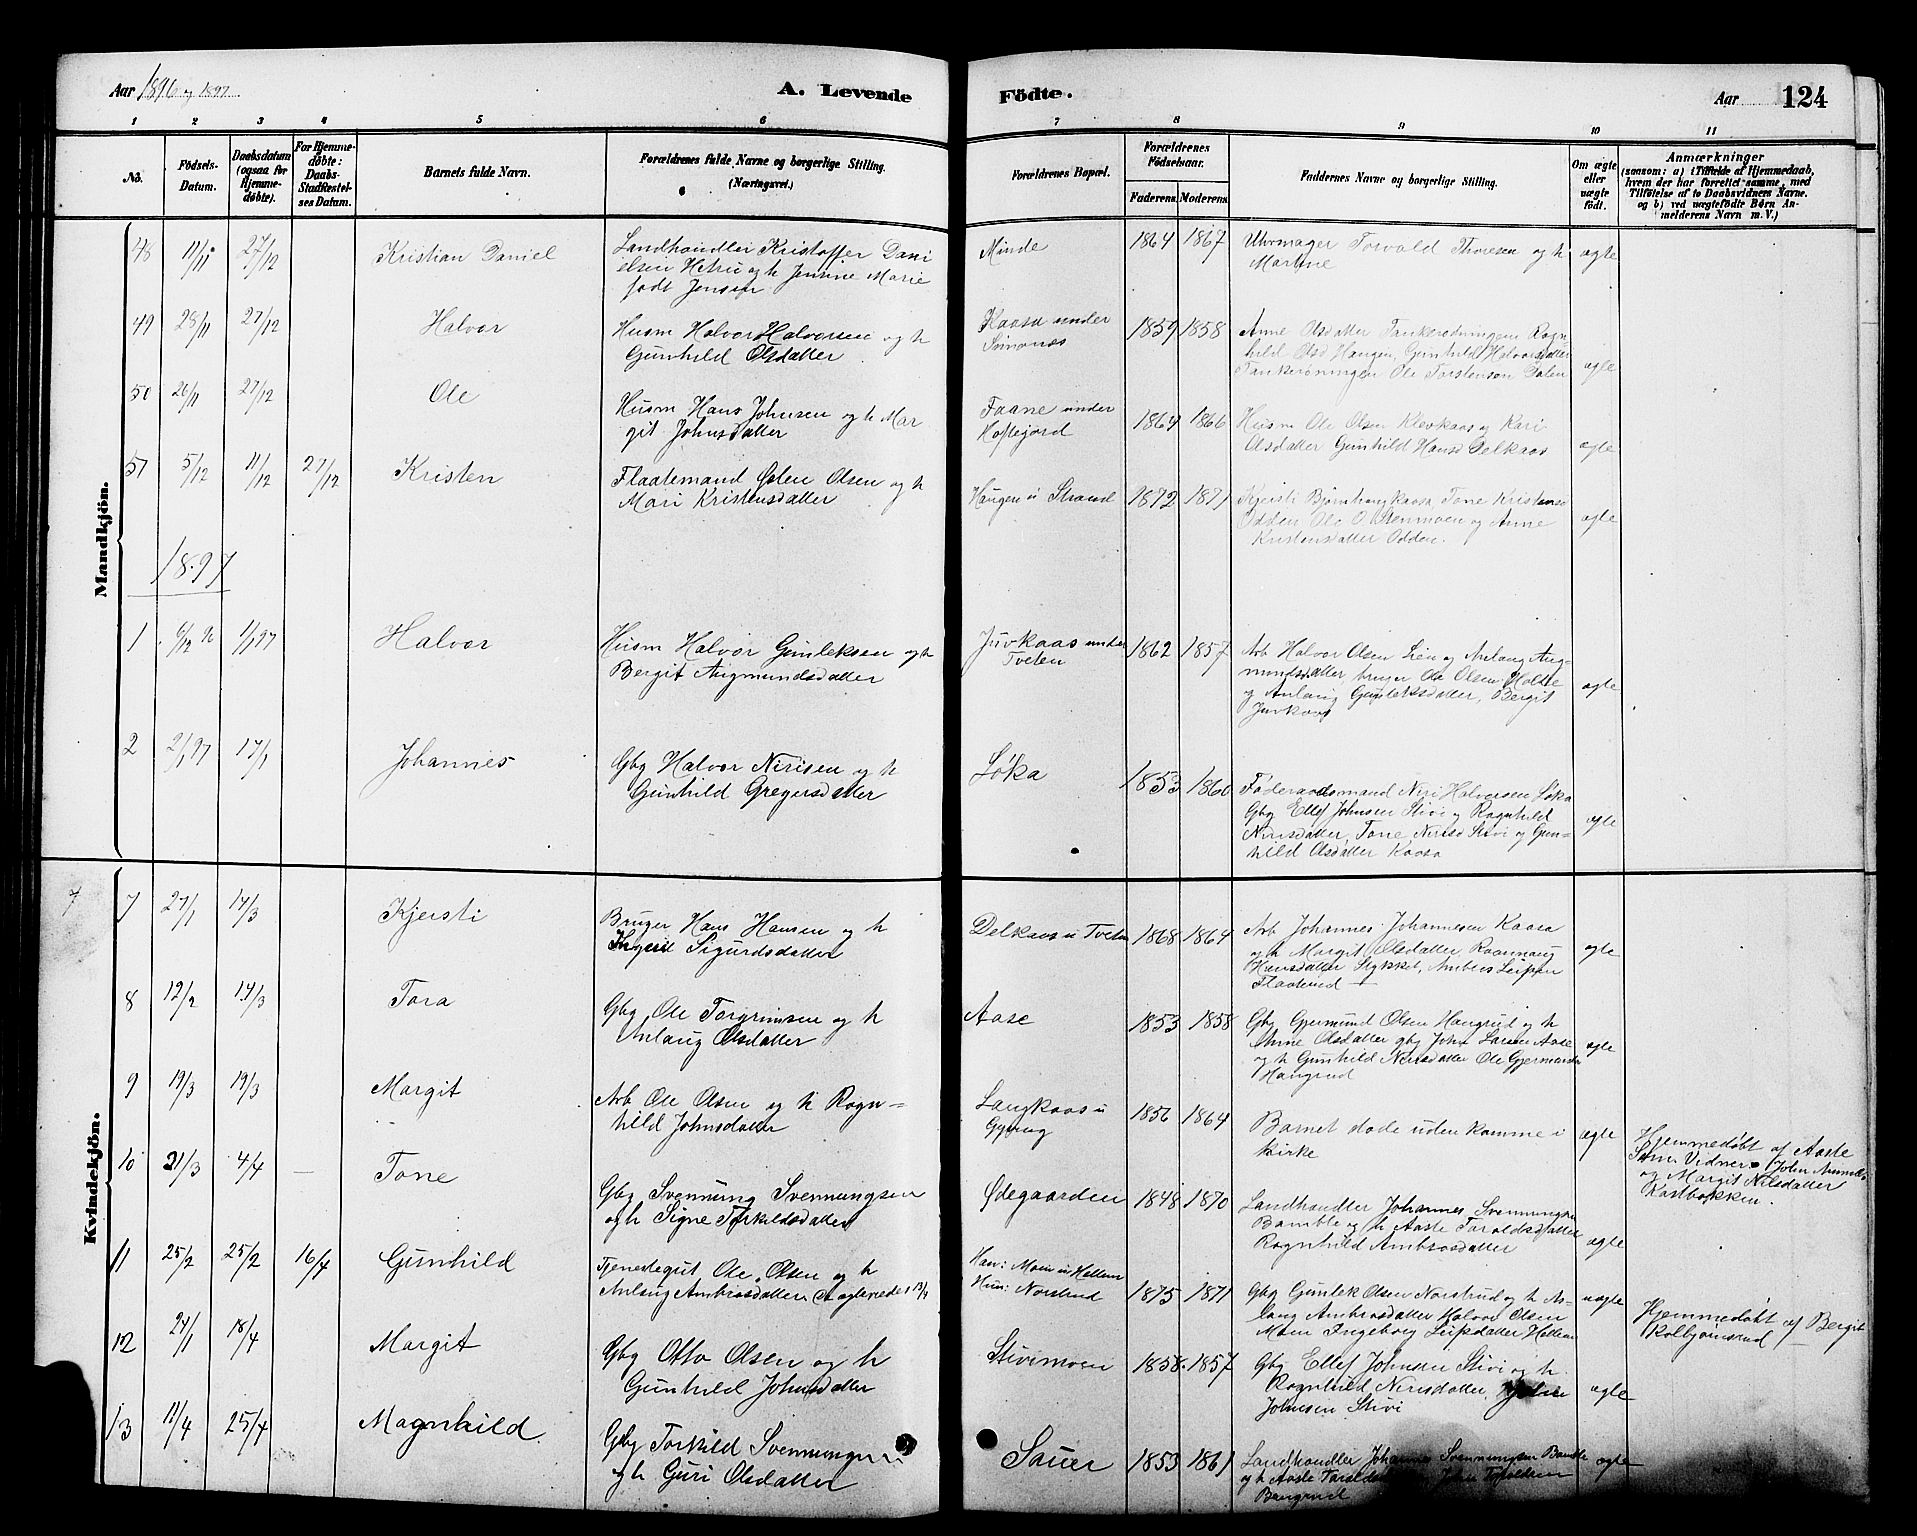 Aar 1896 og 1897
A. Levende
Fødte.
Aar
124
1 2 3 4 5 6 7 8 9 10 11
No.
Fødsels-
Datum.
Daabsdatum
(ogsaa for
Hjemme-
døbte).
For Hjemme-
døbte:
Daabs-
Stadfæstel-
ses Datum.
Barnets fulde Navn.
Forældrenes fulde Navne og borgerlige Stilling.
(Næringsvei.)
Forældrenes Bopæl.
Forældrenes
Fødselsaar.
Faderens. Moderens.
Faddernes Navne og borgerlige Stilling.
Om ægte
eller
uægte
født.
Anmærkninger
(saasom: a) i Tilfælde af Hjemmedaab,
hvem der har forrettet samme, med
Tilføielse af to Daabsvidners Navne.
og b) ved uægtefødte Børn An-
melderens Navn m. V.)
Mandkjön.
48 11/11 27/12 Kristian Daniel
Landhandler Kristoffer Dani
elsen og h Jensine Marie
født Jensen
Minde 1864 1867
Uhrmager Torvald Thoresen og h
Martine
ægte
49 28/11 27/12 Halvor
Husm Halvor Halvorsen og h
Gunhild Olsdatter
Kaasa under
1859 1858
Anne Olsdatter Rogn
hild Olsd Haugen, Gunhild Halvorsdatter
Ole Torstensen
ægte
50 26/11 27/12 Ole
Husm Hans Johnsen og h Mar
git Johnsdatter
Faane under
Haftejord
1864 1866
Husm Ole Olsen Klevkaas og Kari
Olsdatter Gunhild Hansd Delkaas
ægte
51 5/12 11/12 27/12 Kristen
Flaatemand Østen Olsen og h
Mari Kristensdatter
Haugen u Strand 1872 1871
Kjersti Tone Kristensd
Odden Ole O Stenmoen og Anne
Kristensdatter Odden.
ægte
1897
1 6/12 96 1/1 97 Halvor
Husm Halvor Gunleksen og h
Bergit Augmundsdatter
Juvkaas under
Tveten
1862 1857
Arb Halvor Olsen Lien og Anlaug Aug-
mundsdatter bruger Ole Olsen Holte
og Anlaug Gunleksdatter, Bergit
Juvkaas
ægte
2 2/1 97 17/1 Johannes
Gbg Halvor Nirisen og h
Gunhild Gregersdatter
Løka 1853 1860
Føderaadsmand Niri Halvorsen Løka
Gbg Ellef Johnsen Stivi og Ragnhild
Nirisdatter, Tone Nirisd Stivi og Gun-
hild Olsdatter Kaasa
ægte
Kvindekjön.
7 7 27/1 14/3 Kjersti
Bruger Hans Hansen og h
Sigurdsdatter
Delkaas u Tveten 1868 1864
Arb Johannes Johannesen Kaasa
og h Margit Olsdatter Raannaug
Hansdatter Stykket,
ægte
8 12/2 14/3 Tora
Gbg Ole Torgrimsen og h
Anlaug Olsdatter
Aase 1853 1858
Gbg Gjermund Olsen Haugrud og h
Anne Olsdatter gbg John Larsen Aase
og h Gunhild Nirisdatter Ole Gjermundsen
Haugrud
ægte
9 19/3 19/3 Margit
Arb Ole Olsen og h Ragn=
hild Johnsdatter
Langkaas u
1856 1864
Barnet døde uden komme i
kirke
ægte
Hjemmedøbt af Aaste
Vidner John
og Margit Nilsdatter
10 21/3 4/4 — Tone
Gbg Svennung Svennungsen
og h Signe Torkildsdatter
Ødegaarden 1848 1870
Landhandler Johannes Svennungsen
Bamble og h Aaste Taraldsdatter
Ragnhild Ambrosdatter
ægte
11 25/2 25/2 16/4 Gunhild
Tjenestegut Ole Olsen og h
Anlaug Ambrosdatter
Han: Moen u Hellem
Hun: Norstrud
1875 1871
Gbg Gunlek Olsen Norstrud og h As-
laug Ambrosdatter Halvor Olsen
Moen Ingeborg Leifsdatter Hellem
uægte
Hjemmedøbt af Bergit
Kolbjørnsrud
12 24/1 18/4 Margit
Gbg Otto Olsen og h
Gunhild Johnsdatter
Stivimoen 1858. 1857
Gbg Ellef Johnsen Stivi og h
Ragnhild Nirisdatter,
Johnsen Stivi
ægte
13 11/4 25/4 Magnhild
Gbg Torkild Svennungsen
og h Guri Olsdatter
Sauer 1853 1861
Landhandler Johannes Svennungsen Bamble
og h Aaste
ægte